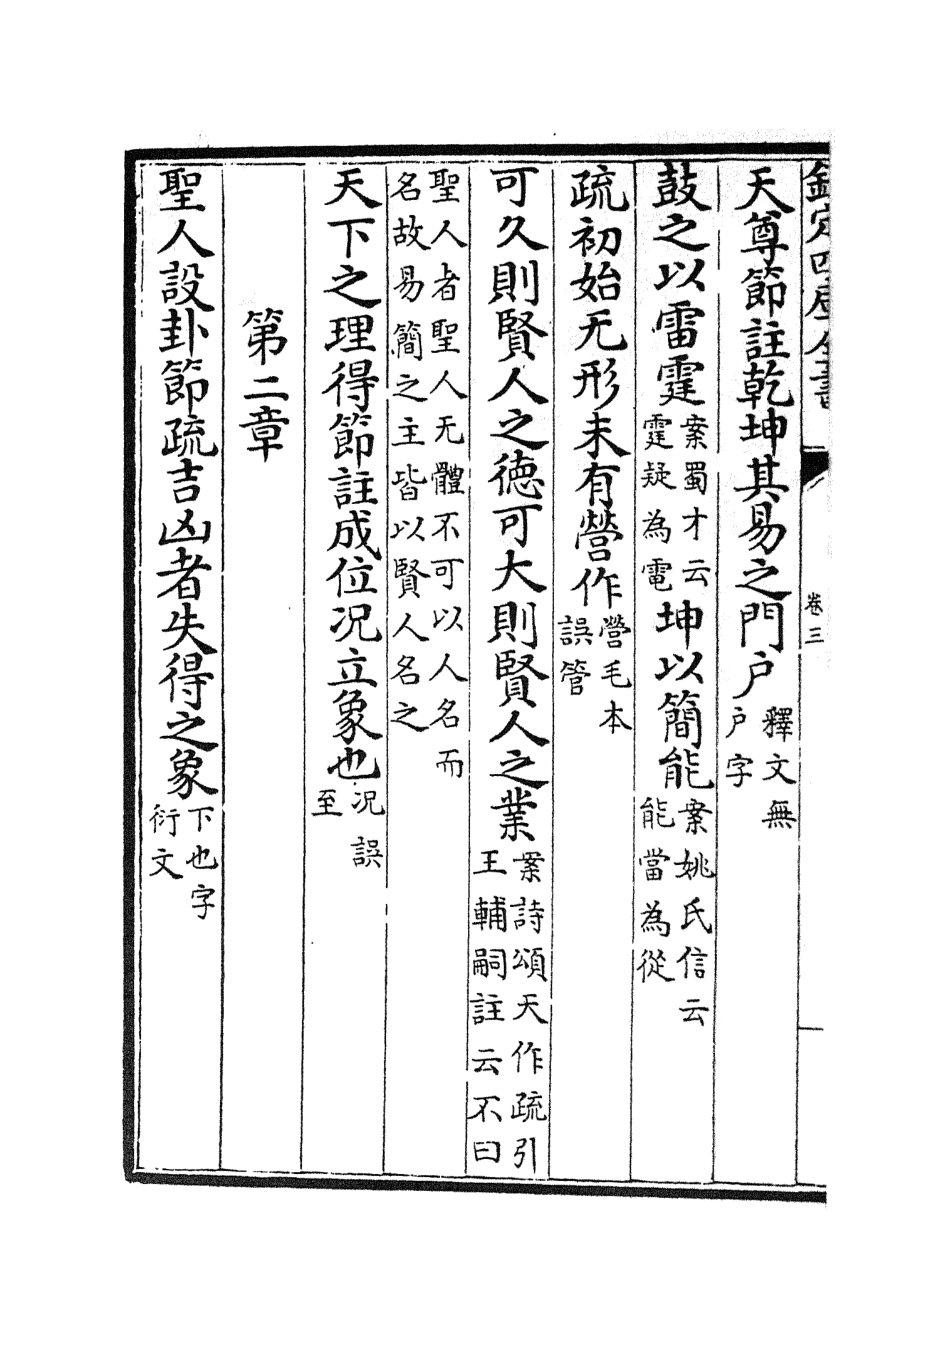 欽定四庫全書
卷三
天尊節註乾坤其易之門户釋文無户字
鼓之以雷霆案蜀才云霆疑為電坤以簡能案姚氏信云能當為從
疏初始无形未有營作營毛本誤管
可久則賢人之德可大則賢人之業案詩頌天作疏引王輔嗣註云不曰
聖人者聖人无體不可以人名而名故易簡之主皆以賢人名之
天下之理得節註成位况立象也况誤至
第二章
聖人設卦節疏吉凶者失得之象下也字衍文